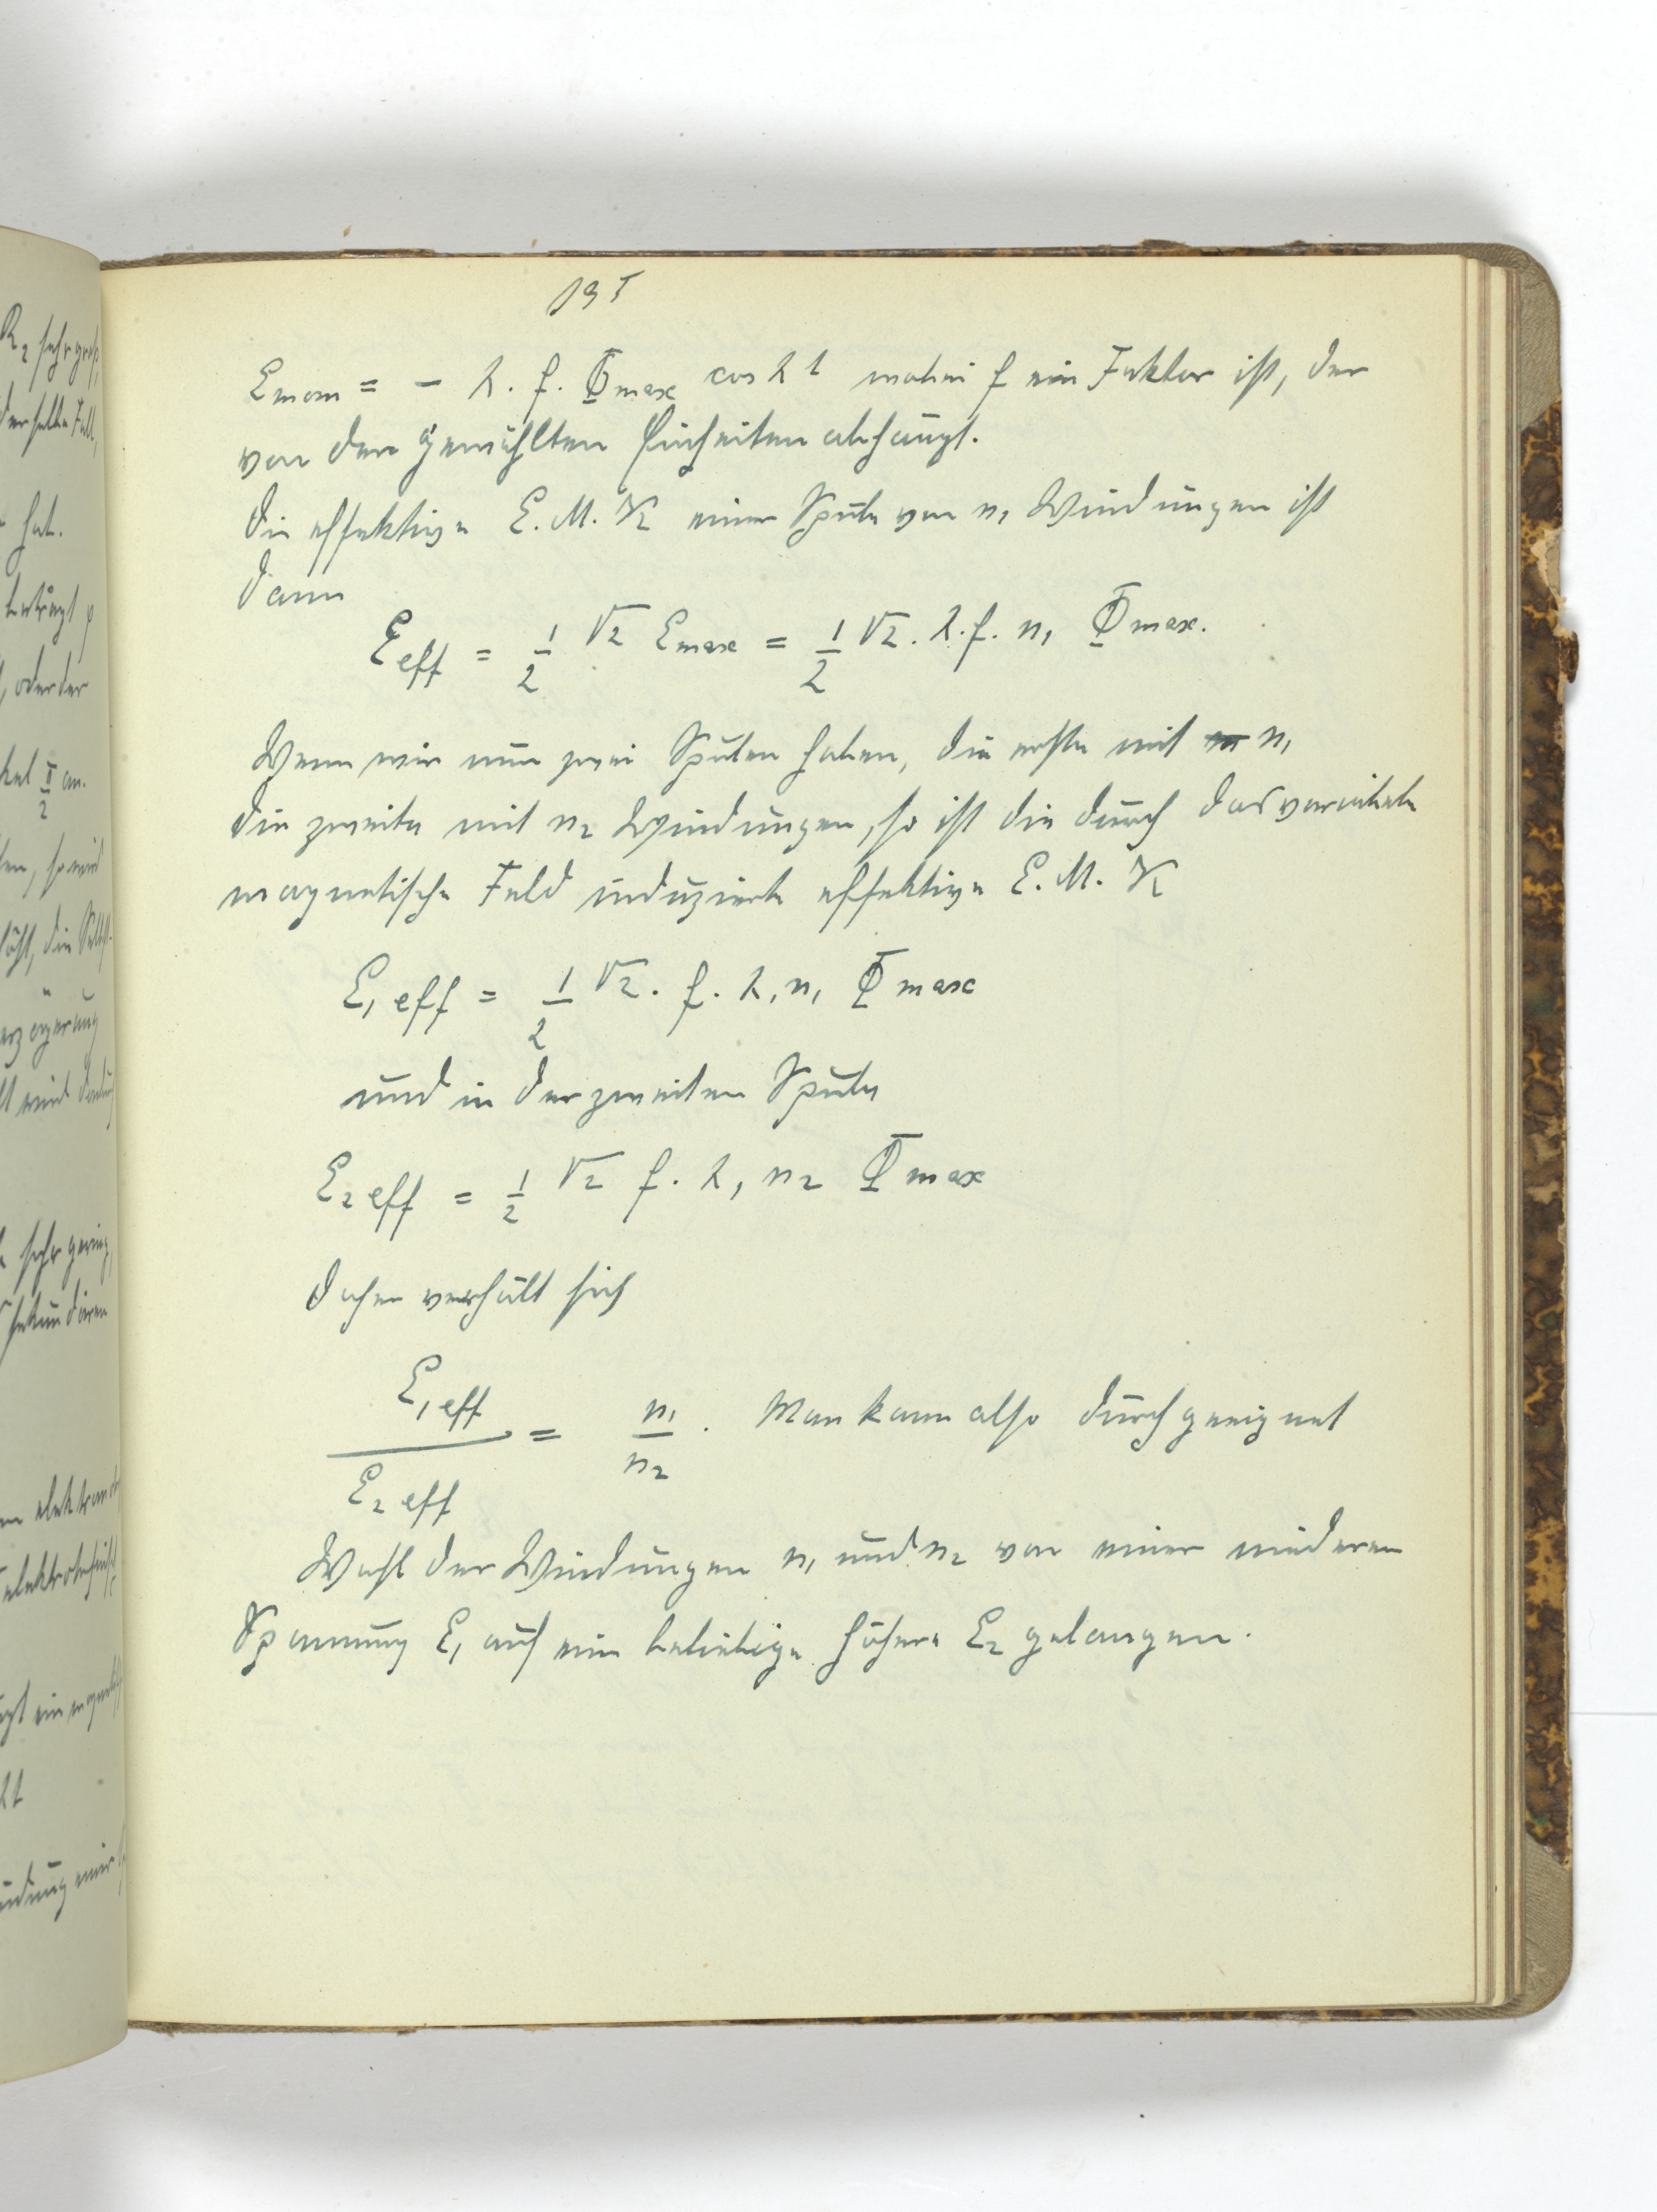 135
E mom = - λ. f. Φ max cos λ t wobei f ein Faktor ist, der
von den gewählten Einheiten abhängt.
Die effektive E. M. K einer Spule von n₁ Windungen ist
dann
E eff = 1/2 √2 E max = 1/2 √2 . λ. f. n₁ Φ max.
Wenn wir nun zwei Spulen haben, die erste mit n₁
die zweite mit n₂ Windungen, so ist die durch das
magnetische Feld induzierte effektive E. M. K
E₁ eff = 1/2 √2 . f. λ, n₁ Φ max
und in der zweiten Spule
E₂ eff = 1/2 √2 f. λ, n₂ Φ max
Daher verhält sich
E₁ eff / E₂ eff = n₁ / n₂ . Man kann also durch geeignet
Wahl der Windungen n₁ und n₂ von einer niederen
Spannung E₁ auf ein beliebige höhere E₂ gelangen.